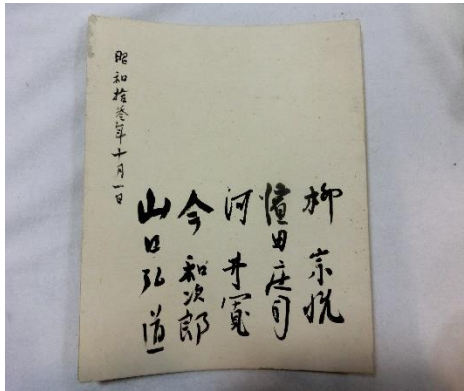 柳宗悦
濱田庄司
河井寛
今和次郎
山口弘道
昭和拾叄年十月一日